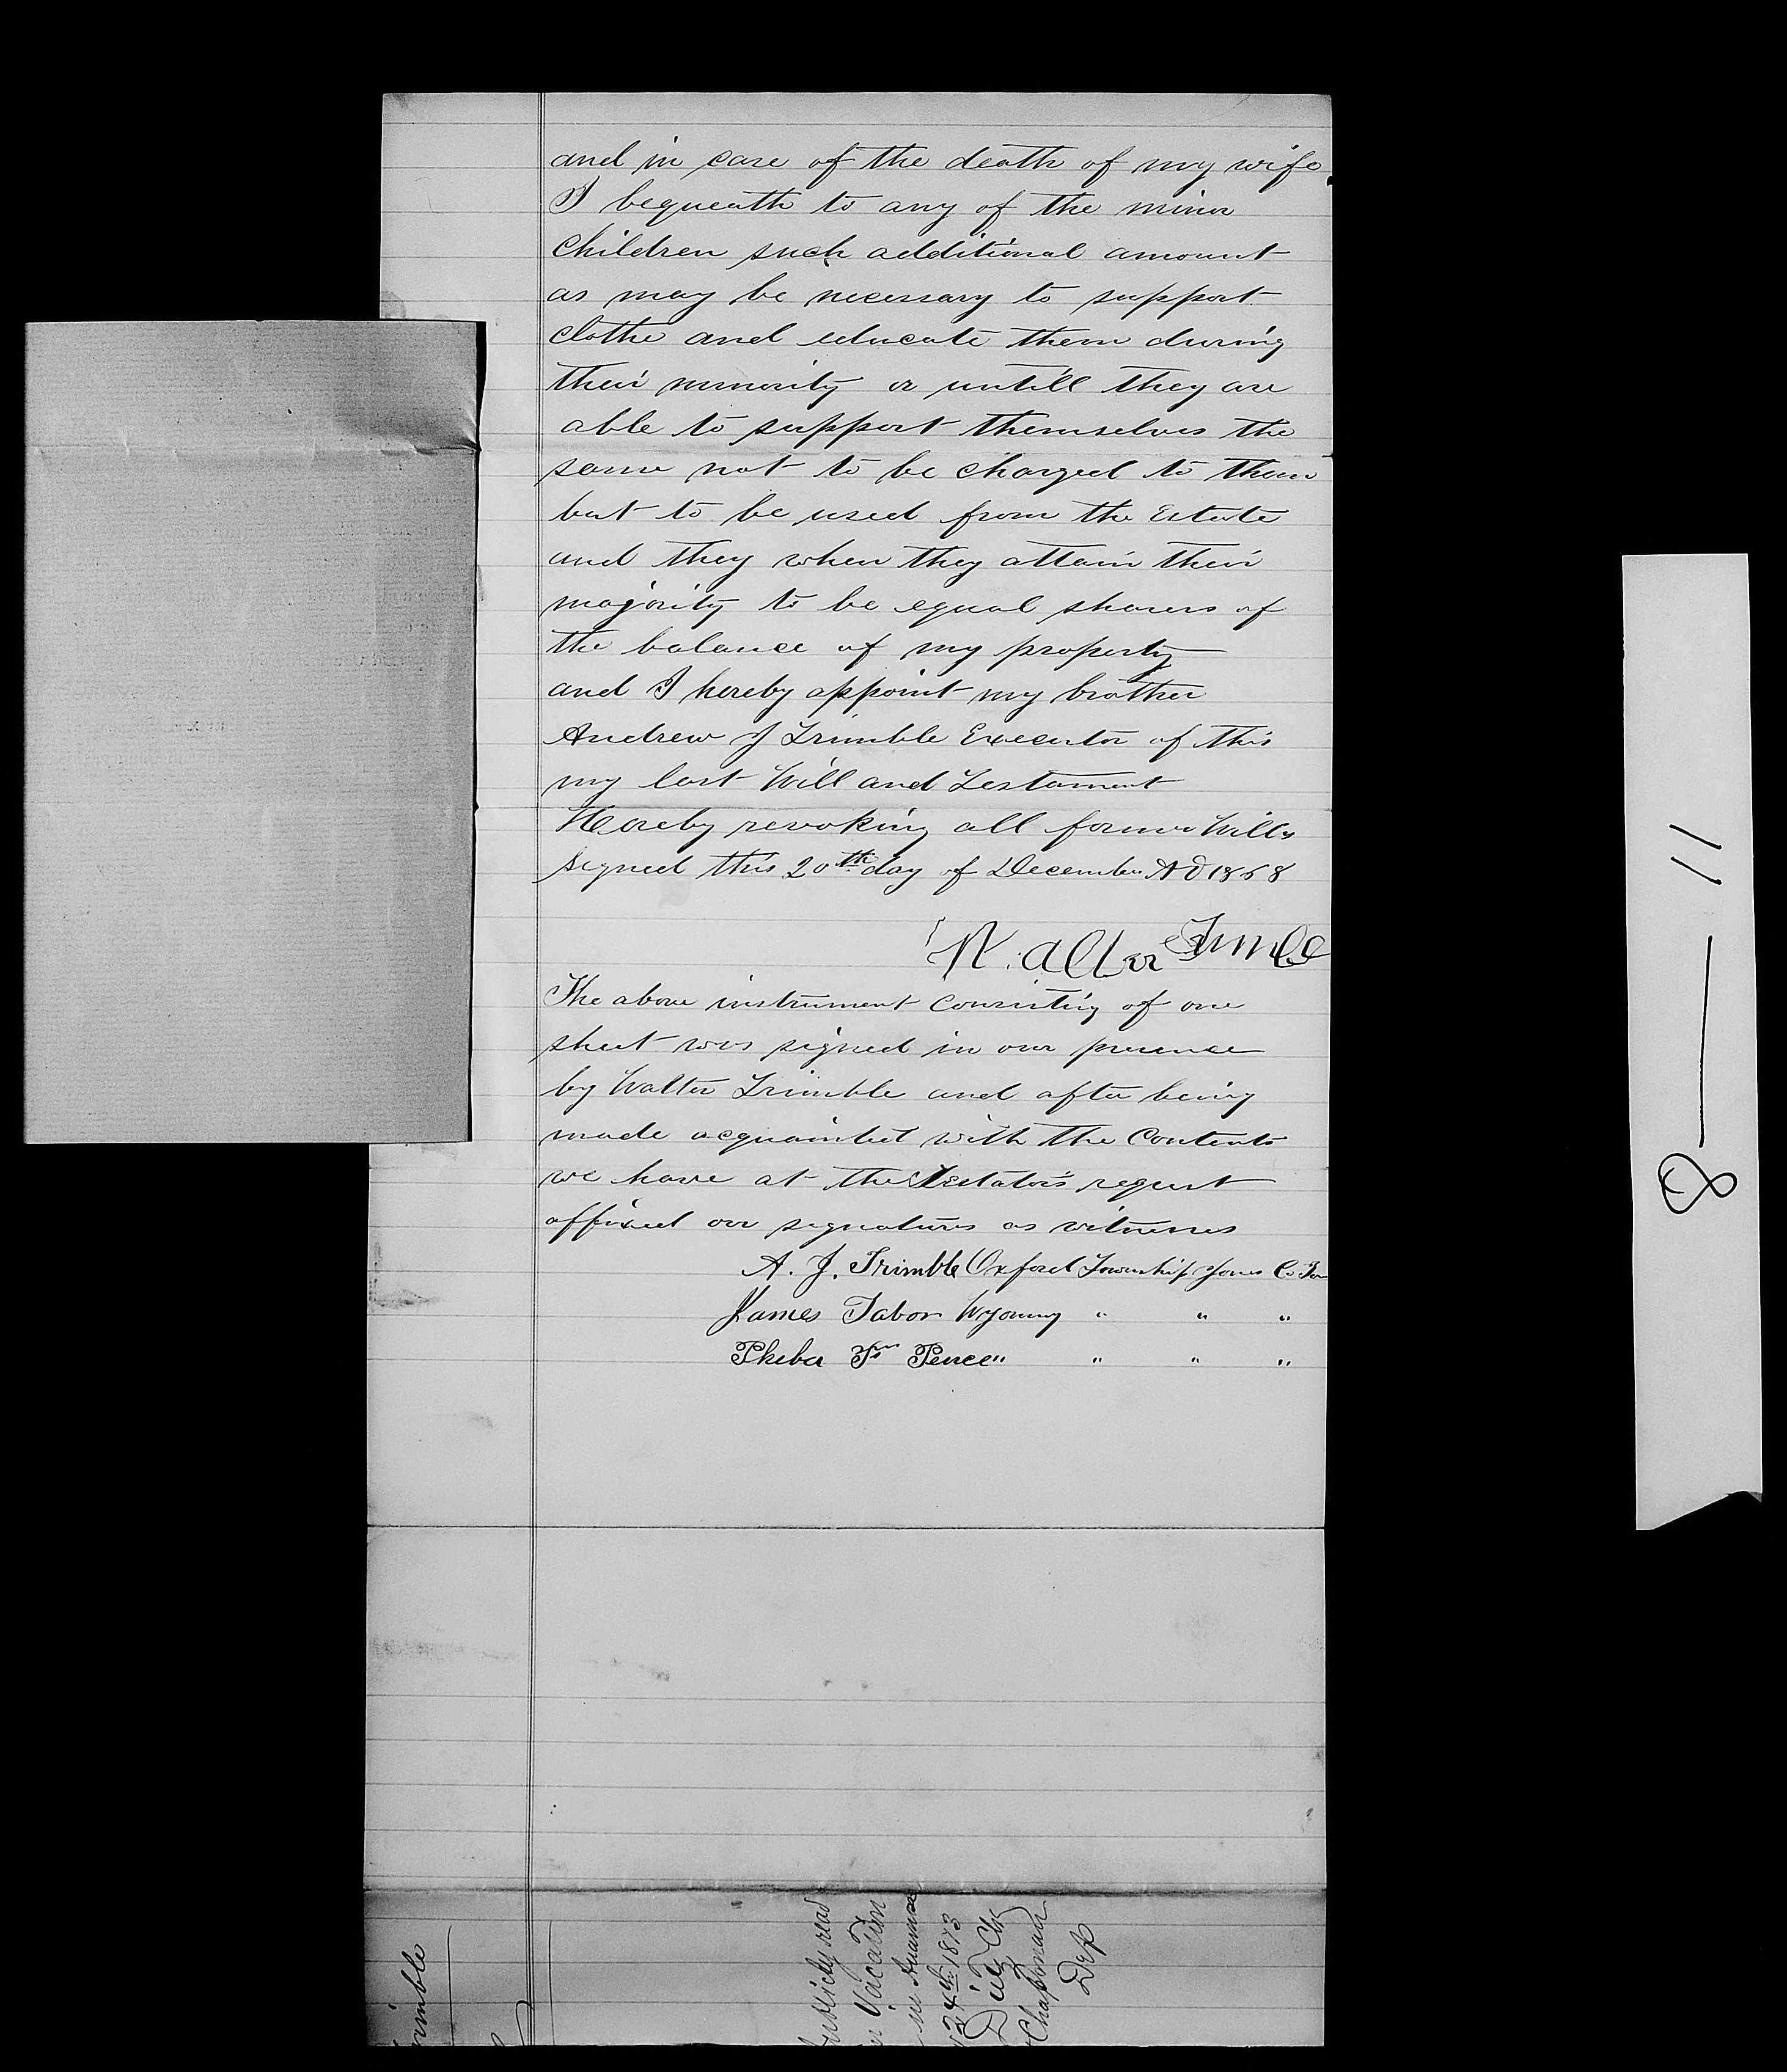 and in case of the death of my wife
I bequeath to any of the minor
children such additional amount
as may be necessary to support
clothe and educate them during
their minority or untill they are
able to support themselves the
same not to be charged to them
but to be used from the Estate
and they when they attain their
majority to be equal sharers of
the balance of my property
and I hereby appoint my brother
Andrew J Trimble Executor of this
my last Will and Testament
Hereby revoking all former Wills
signed this 20th day of December AD 1868
Walter Trimble
The above instrument consisting of one
sheet was signed in our presence
by Walter Trimble and after being
made acquainted with the Contents
we have at the Testators request
affixed our signatures as witnesses
A. J. Trimble Oxford Township Jones Co Iow
James Tabor Wyoming " " "
Pheba Pence " " " "
rimble
ublicly read
Vacation
in Anamosa
24th 1873
Clk
Chapman
Dep
8 — 11